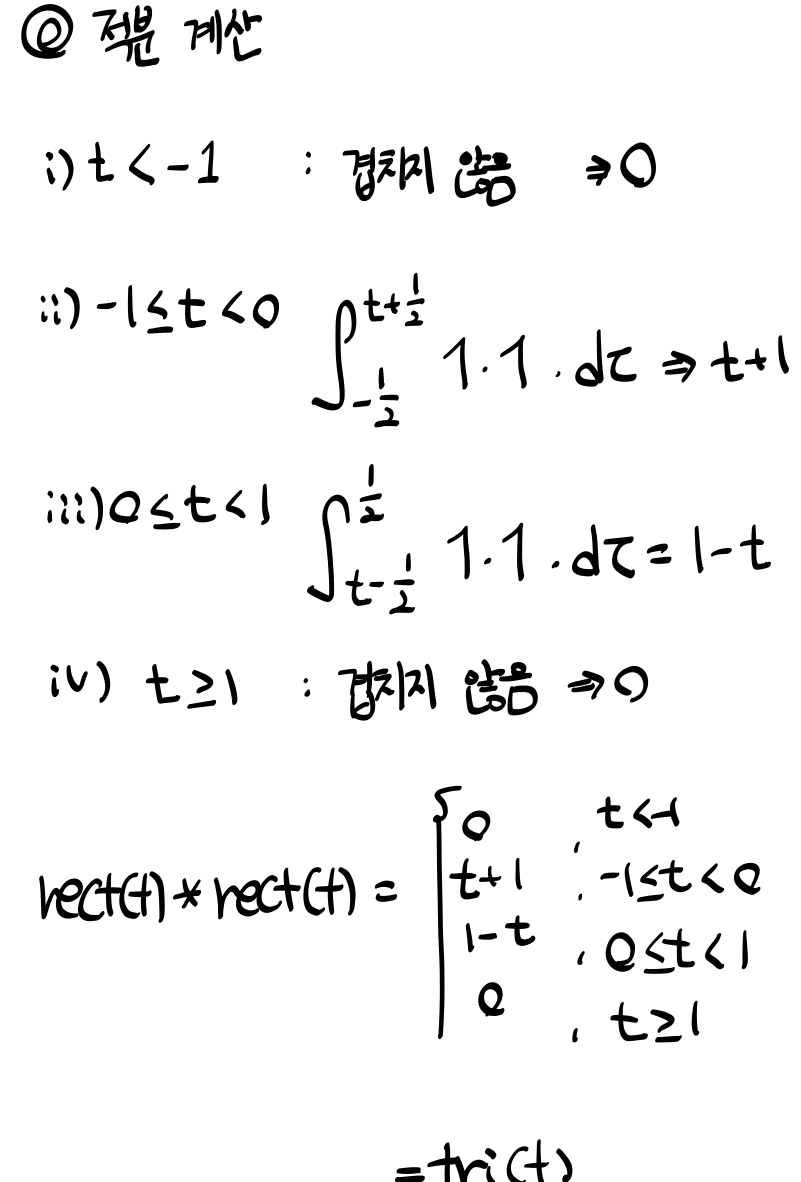 ② 적분 계산
i) t < -1 : 겹치지 않음 ⇒ 0
ii) -1 ≤ t < 0 ∫_{-1/2}^{t+1/2} 1·1·dτ ⇒ t+1
iii) 0 ≤ t < 1 ∫_{t-1/2}^{1/2} 1·1·dτ = 1-t
iv) t ≥ 1 : 겹치지 않음 ⇒ 0
rect(t) * rect(t) = { 0 , t < -1
t+1 , -1 ≤ t < 0
1-t , 0 ≤ t < 1
0 , t ≥ 1
= tri(t)